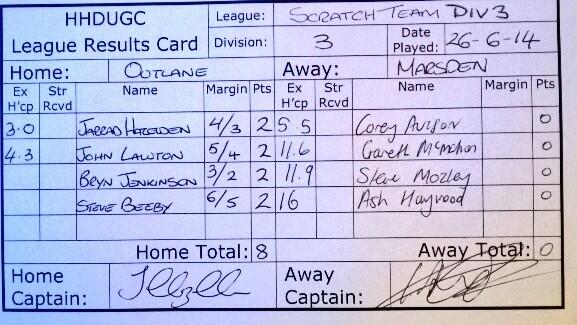 HHDUGC League: SCRATCH TEAM DIV 3
League Results Card Division: 3 Date Played: 26-6-14
Home: OUTLANE Away: MARSDEN
Ex H'cp Str Rcvd Name Margin Pts Ex H'cp Str Rcvd Name Margin Pts
3.0 JARRAD 4/3 2 5.5 Corey 0
4.3 JOHN LAWTON 5/4 2 11.6 Gareth McMahon 0
BRYN JENKINSON 3/2 2 11.9 Steve Mozley 0
STEVE BEEBY 6/5 2 16 Ash Haywood 0
Home Total: 8 Away Total: 0
Home Captain: Away Captain: